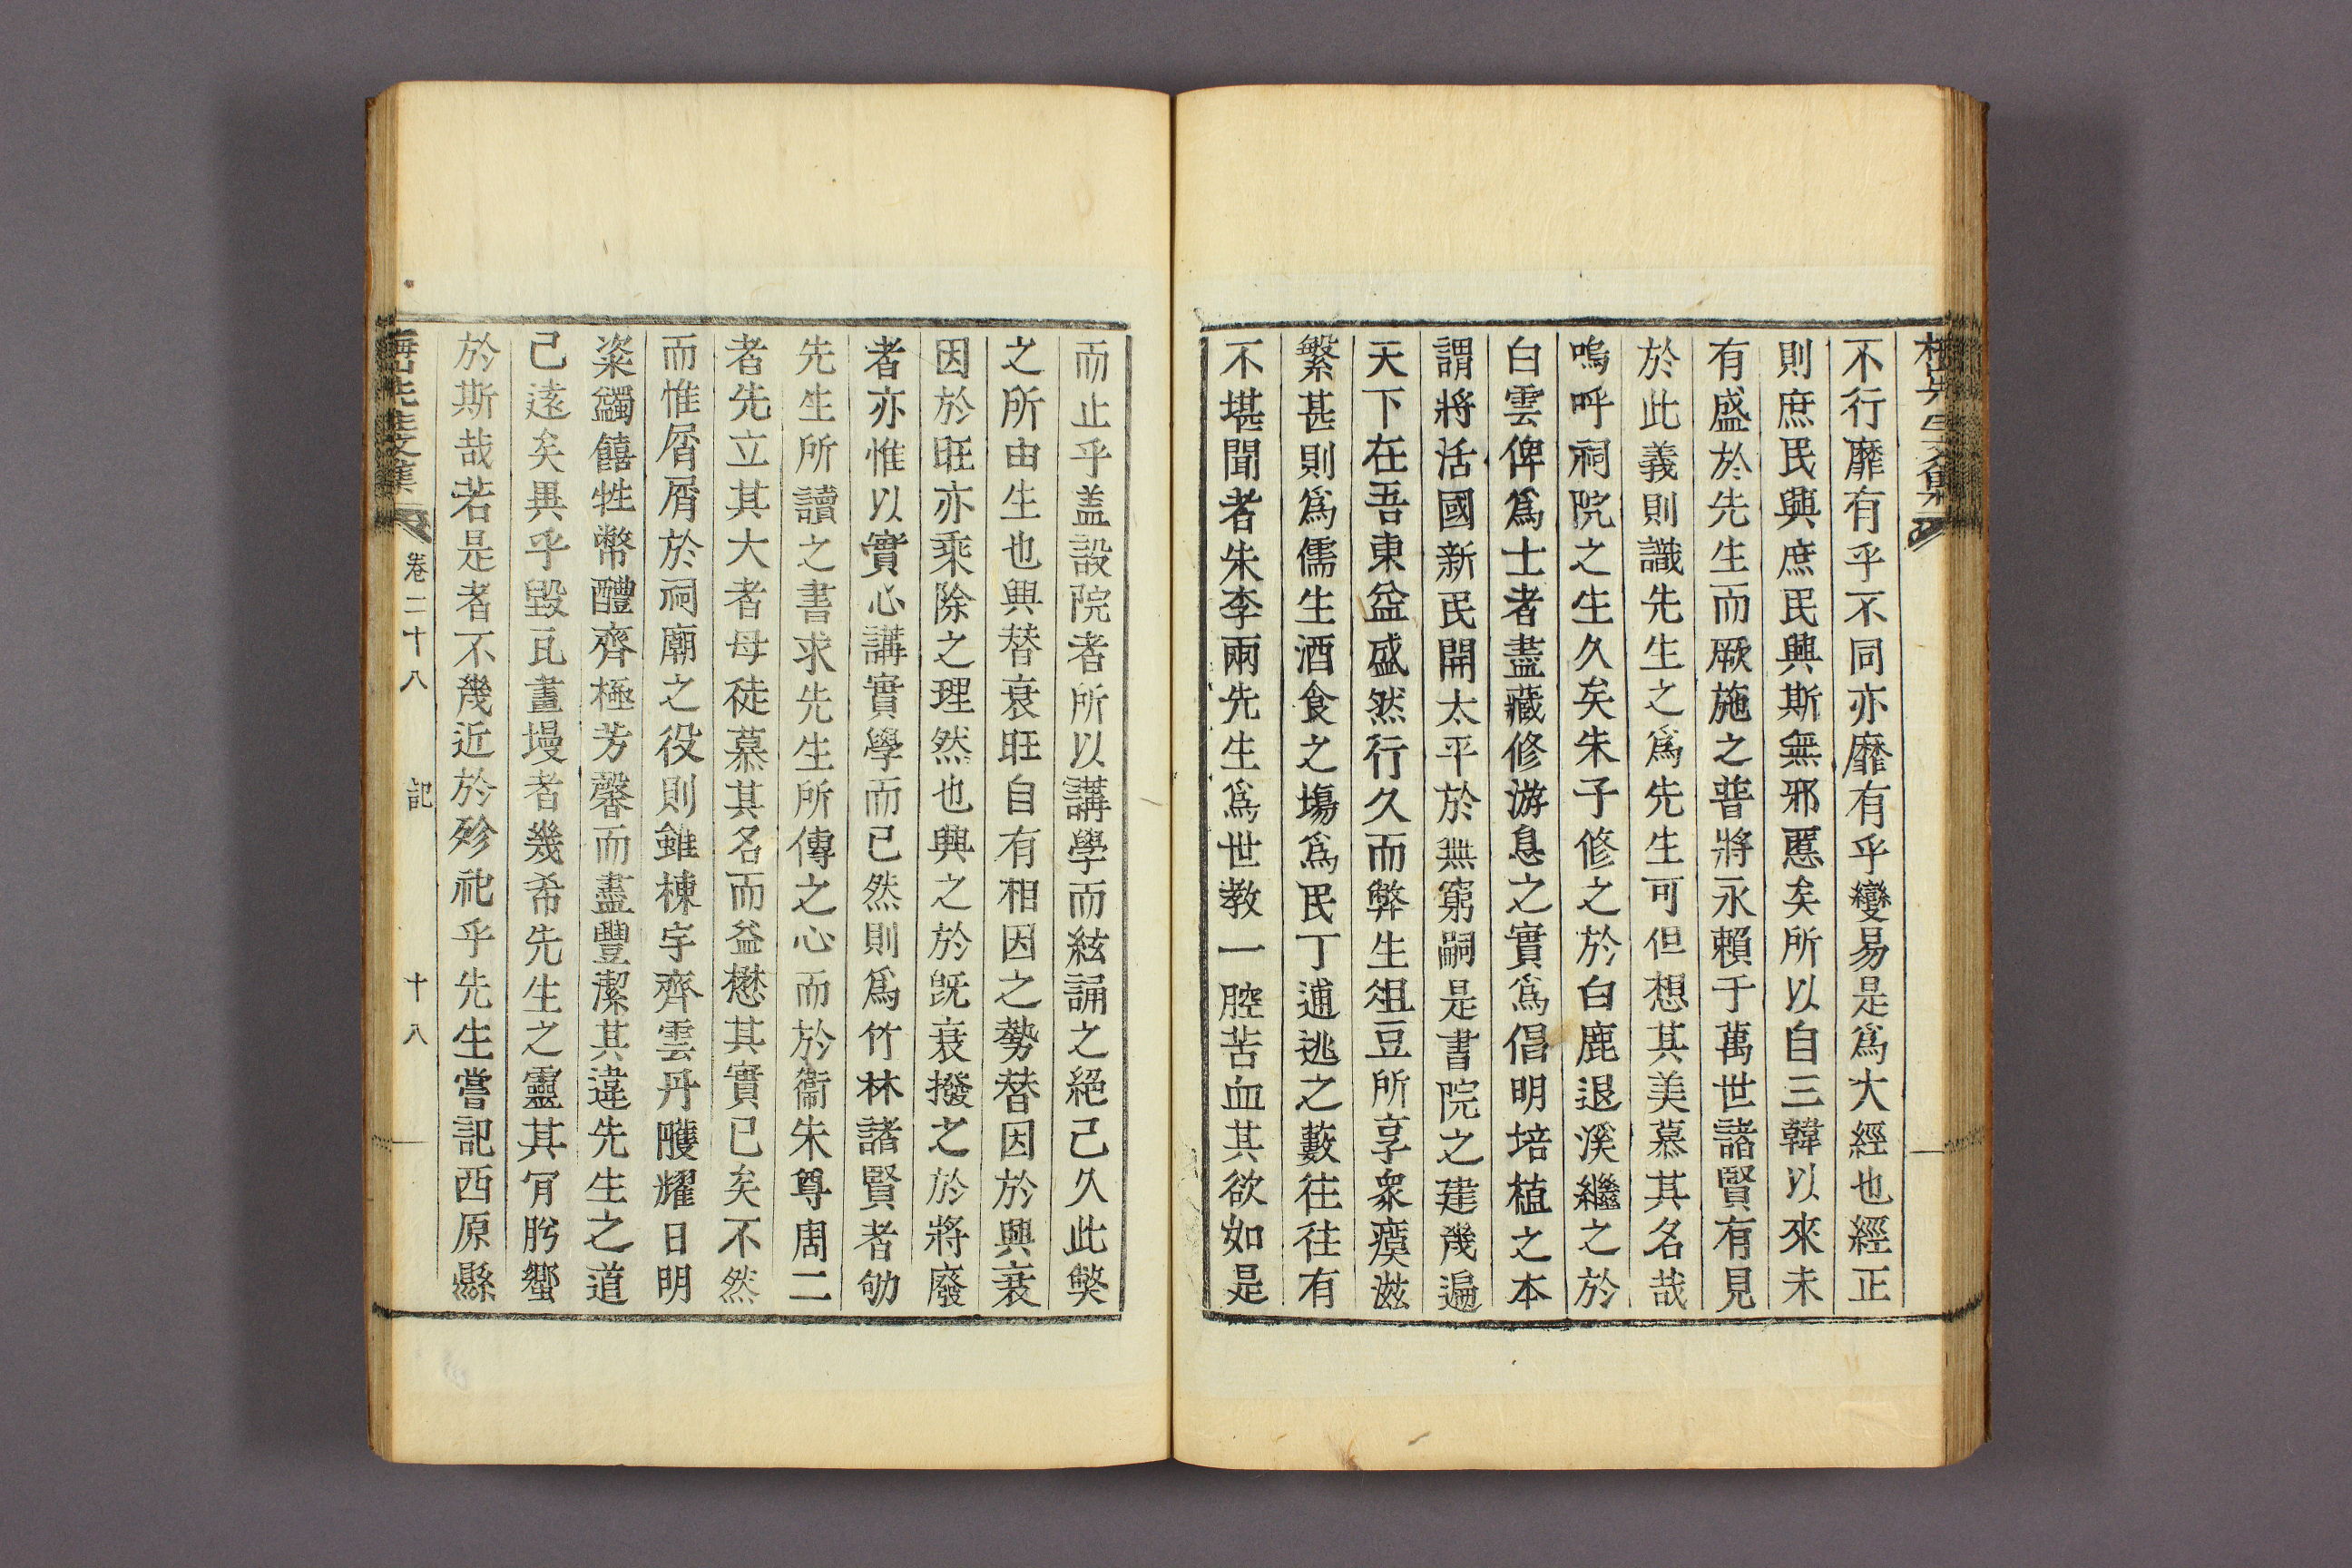 不行靡有乎不同亦靡有乎變易是爲大經也經正
則庶民興庶民興斯無邪慝矣所以自三韓以來未
有盛於先生而厥施之普將永賴于萬世諸賢有見
於此義則識先生之爲先生可但想其美慕其名哉
嗚呼祠院之生久矣朱子修之於白鹿退溪繼之於
白雲俾爲士者盡藏修游息之實爲倡明培植之本
謂將活國新民開太平於無窮嗣是書院之建幾遍
天下在吾東益盛然行久而弊生俎豆所享衆瘼滋
繁甚則爲儒生酒食之場爲民丁逋逃之藪往往有
不堪聞者朱李兩先生爲世教一腔苦血其欲如是
而止乎盖設院者所以講學而絃誦之絕已久此弊
之所由生也興替衰旺自有相因之勢替因於興衰
因於旺亦乘除之理然也興之於旣衰撥之於將廢
者亦惟以實心講實學而已然則爲竹林諸賢者劬
先生所讀之書求先生所傳之心而於衞朱尊周二
者先立其大者母徒慕其名而益懋其實已矣不然
而惟屑屑於祠廟之役則雖棟宇齊雲丹雘耀日明
粢蠲饎牲幣醴齊極芳馨而盡豐潔其違先生之道
已遠矣異乎毀瓦畫墁者幾希先生之靈其肎肹蠁
於斯哉若是者不幾近於殄祀乎先生嘗記西原縣
卷二十八 記 十八